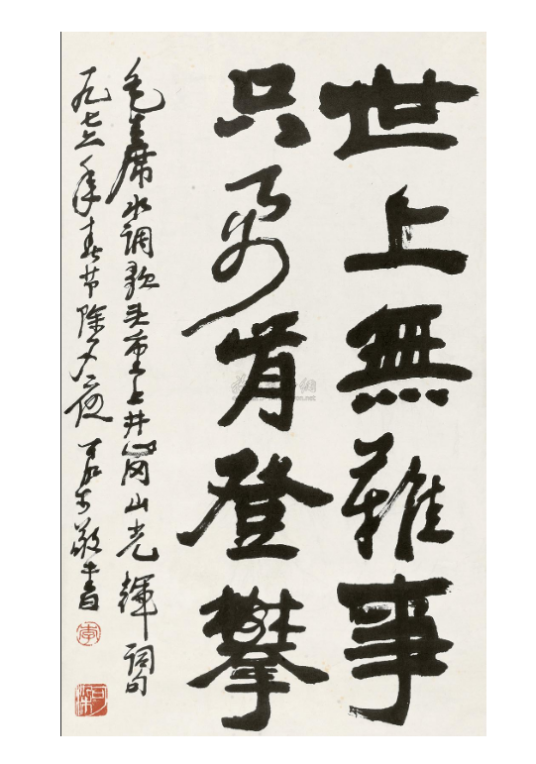 世上無難事
只要肯登攀
毛主席水调歌头重上井岗山光輝词句
一九七六年春节除夕夜 可染敬书
李
可染